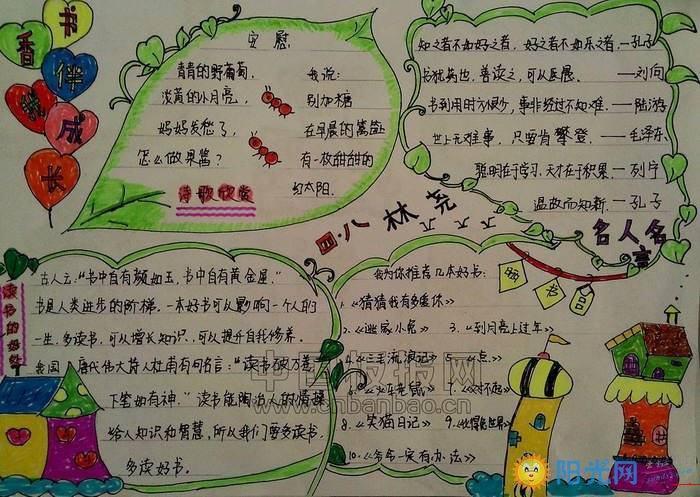 书
香
伴
成
长
安慰
青青的野葡萄,
淡黄的小月亮,
妈妈发愁了,
怎么做果酱?
我说:
别加糖
在早晨的篱笆
有一枚甜甜的
红太阳。
诗歌欣赏
知之者不如好之者,好之者不如乐之者。—孔子
书犹药也,善读之,可以医愚。——刘向
书到用时方恨少,事非经过不知难。—陆游
世上无难事,只要肯攀登。—毛泽东
聪明在于学习,天才在于积累。—列宁
温故而知新。—孔子
名人名言
四.八 林尧
读书的好处
古人云:"书中自有颜如玉,书中自有黄金屋。"
书是人类进步的阶梯。一本好书可以影响一个人的
一生,多读书,可以增长知识,可以提升自我修养。
我国唐代伟大诗人杜甫有句名言:"读书破万卷,
下笔如有神。"读书能陶冶人的情操
给人知识和智慧,所以我们要多读书。
多读好书。
我为你推荐几本好书:
1.《猜猜我有多爱你》
2.《逃家小兔》 3.《到月亮上过年》
4.《三毛流浪记》 5.《一点》
7.《对不起》
8.《笑猫日记》
10.《爷爷一定有办法》
中国板报网
www.cnbanbao.cn
阳光网